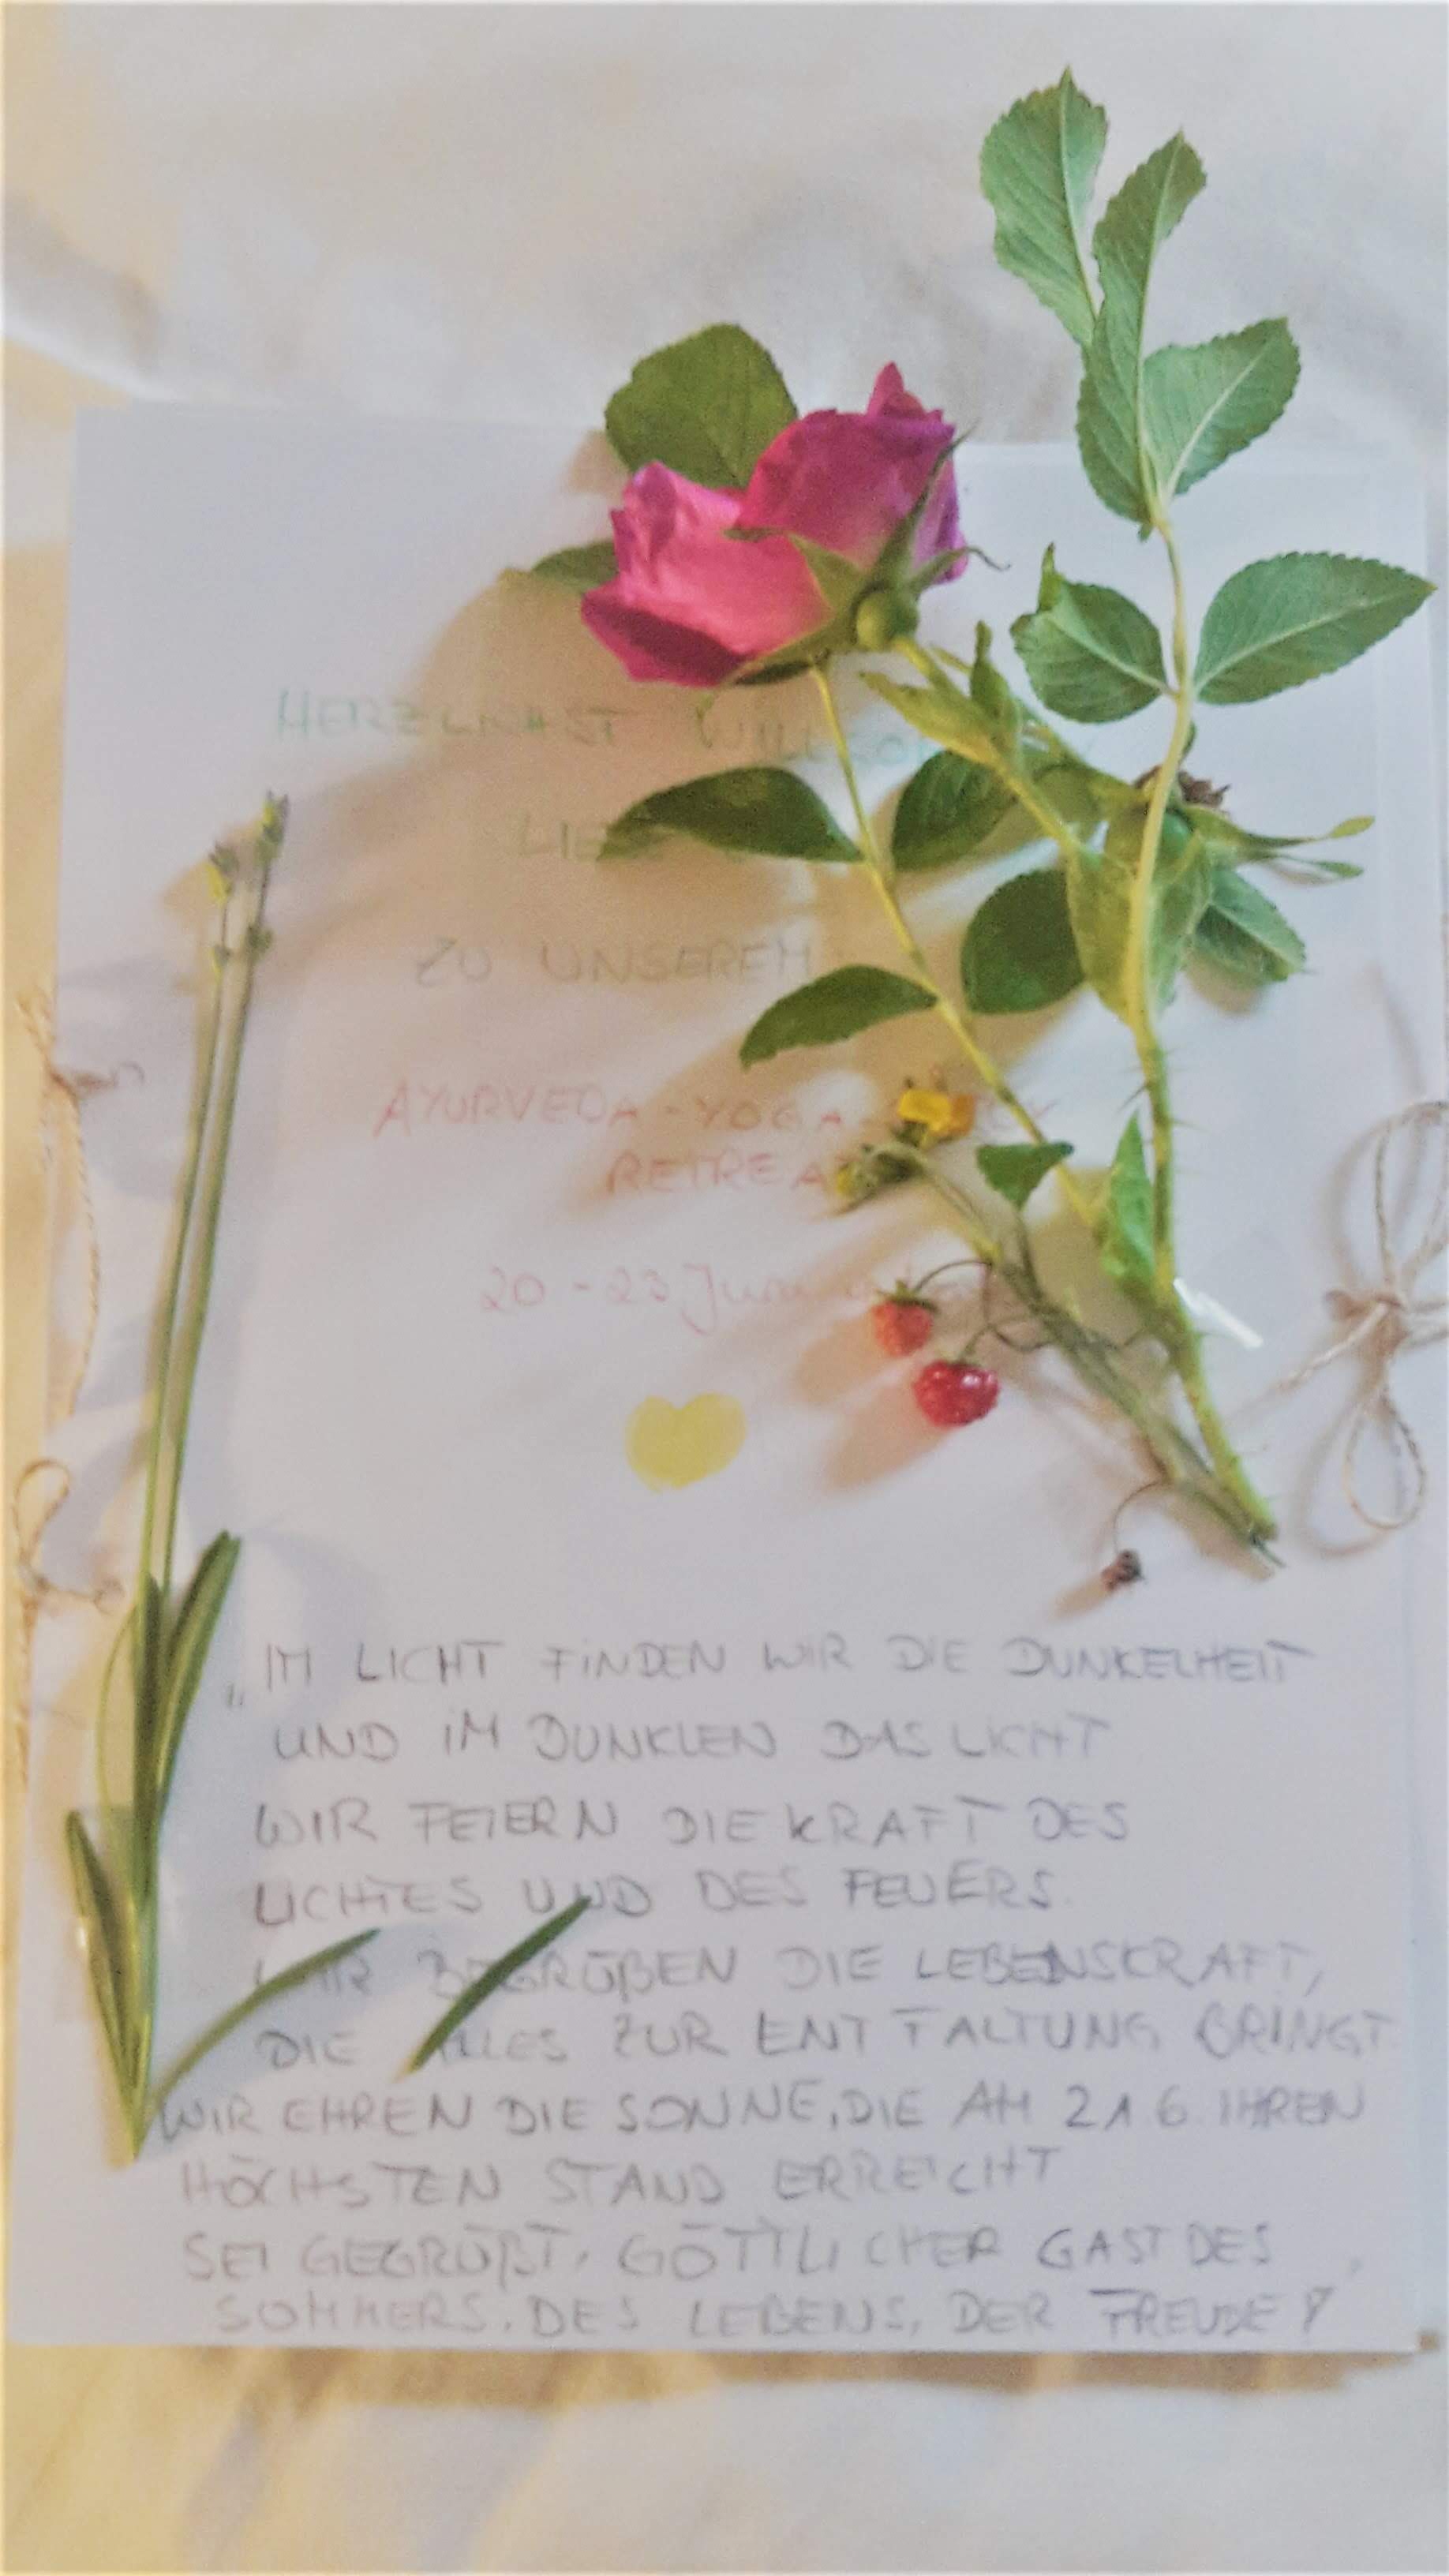 HERZLICHST
ZU UNSEREM
AYURVEDA - YOGA
20 - 23 Juni
„IM LICHT FINDEN WIR DIE DUNKELHEIT
UND IM DUNKLEN DAS LICHT
WIR FEIERN DIE KRAFT DES
LICHTES UND DES FEUERS.
WIR BEGRÜßEN DIE LEBENSKRAFT,
DIE ALLES ZUR ENTFALTUNG BRINGT.
WIR EHREN DIE SONNE, DIE AM 21 6. IHREN
HÖCHSTEN STAND ERREICHT
SEI GEGRÜßT, GÖTTLICHER GAST DES
SOMMERS, DES LEBENS, DER FREUDE!